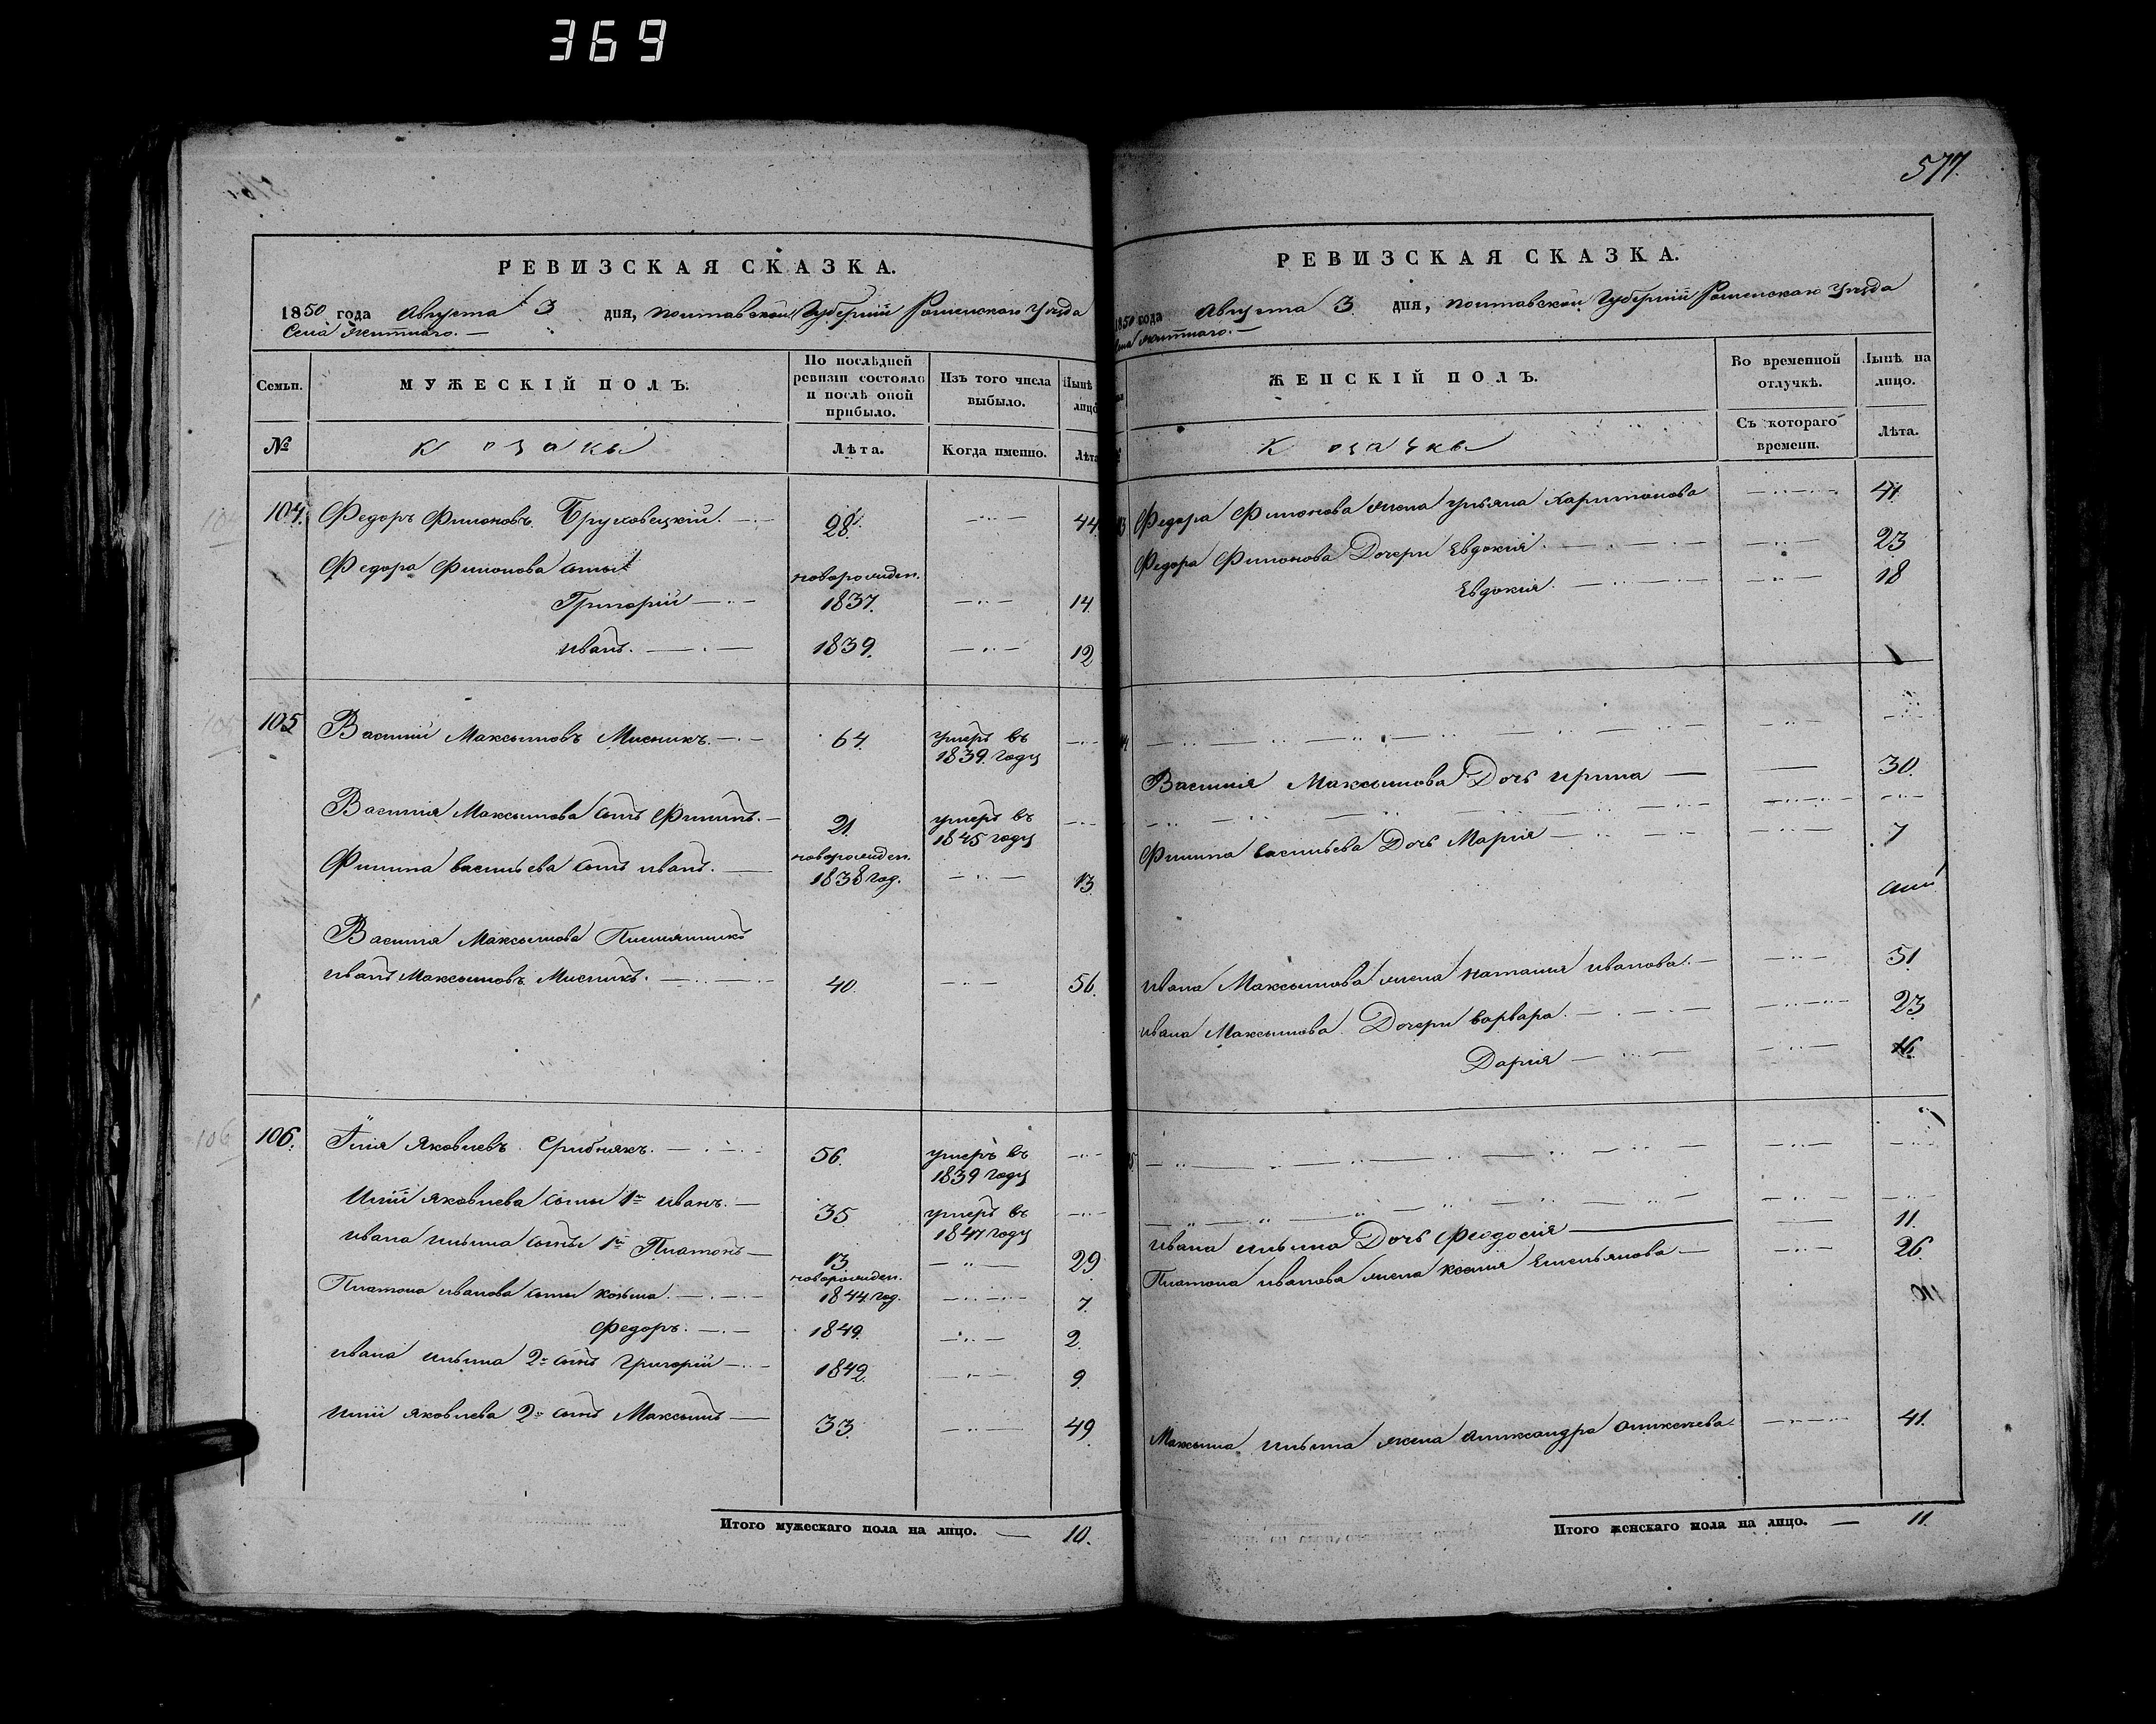 369
РЕВИЗСКАЯ СКАЗКА.
1850 года Августа 3 дня, Полтавской Губерніи Роменского Уезда
Села Житного. —
Семьи.
МУЖЕСКІЙ ПОЛЪ.
По послѣдней ревизіи состояло и послѣ оной прибыло.
Изъ того числа выбыло.
Нынѣ лицо
№
Козаки
Лѣта.
Когда именно.
Лѣта
104. Федоръ Филоновъ Бруховецкій. 28. 44.
Федора Филонова сыны
новорожден.
Григорій 1837. 14.
иванъ. 1839. 12
105 Василий Максымовъ Мисникъ. 64. умеръ въ
1839. году
Василія Максымова сынъ Филипъ. 21. умеръ въ
1845 году
новорожден.
Филипа васильева сынъ иванъ. 1838 год. 13
Василія Максымова Племянникъ
иванъ Максымовъ Мисникъ. 40. 56.
106. Илія Яковлевъ Срибнякъ. 56. умеръ въ
1839 году
Иліи Яковлева сыны 1й иванъ. 35 умеръ въ
1847 году
ивана ильина сыны 1й Платонъ 13 29
новорожден.
Платона иванова сыны козьма. 1844 год. 7.
Федоръ. 1849. 2.
ивана ильина 2й сынъ Григорій 1842. 9.
Иліи Яковлева 2й сынъ Максымъ 33. 49.
Итого мужескаго пола на лицо. — 10.
577.
РЕВИЗСКАЯ СКАЗКА.
1850 года Августа 3 дня, Полтавской Губерніи Роменскаго Уезда
Села Житного. —
ЖЕНСКІЙ ПОЛЪ.
Во временной отлучкѣ.
Нынѣ на лицо.
Козачки
Съ котораго времени.
Лѣта.
Федора Филонова жена ульяна Харитонова 41
Федора Филонова Дочери Евдокія. 23
Евдокія. 18
Василія Максымова Дочь ирина 30.
Филипа васильева Дочь Марія 7
ивана Максымова жена наталія иванова. 51.
ивана Максымова Дочери варвара. 23
Дарія 16.
ивана ильина Дочь Феодосія 11.
Платона иванова жена ксенія Емельянова 26.
Максыма ильина жена Александра Аликсеева 41.
Итого женскаго пола на лицо. — 11.